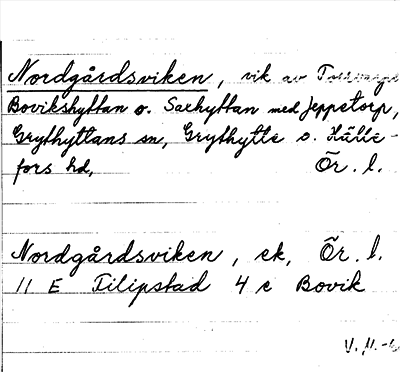 Nordgårdsviken, vik av
Bovikshyttan o. Saxhyttan med Jeppetorp,
Grythyttans sn, Grythytte o. Hälle-
fors hd, Ör. l.
Nordgårdsviken, ek, Ör. l.
11 E Filipstad 4 e Bovik